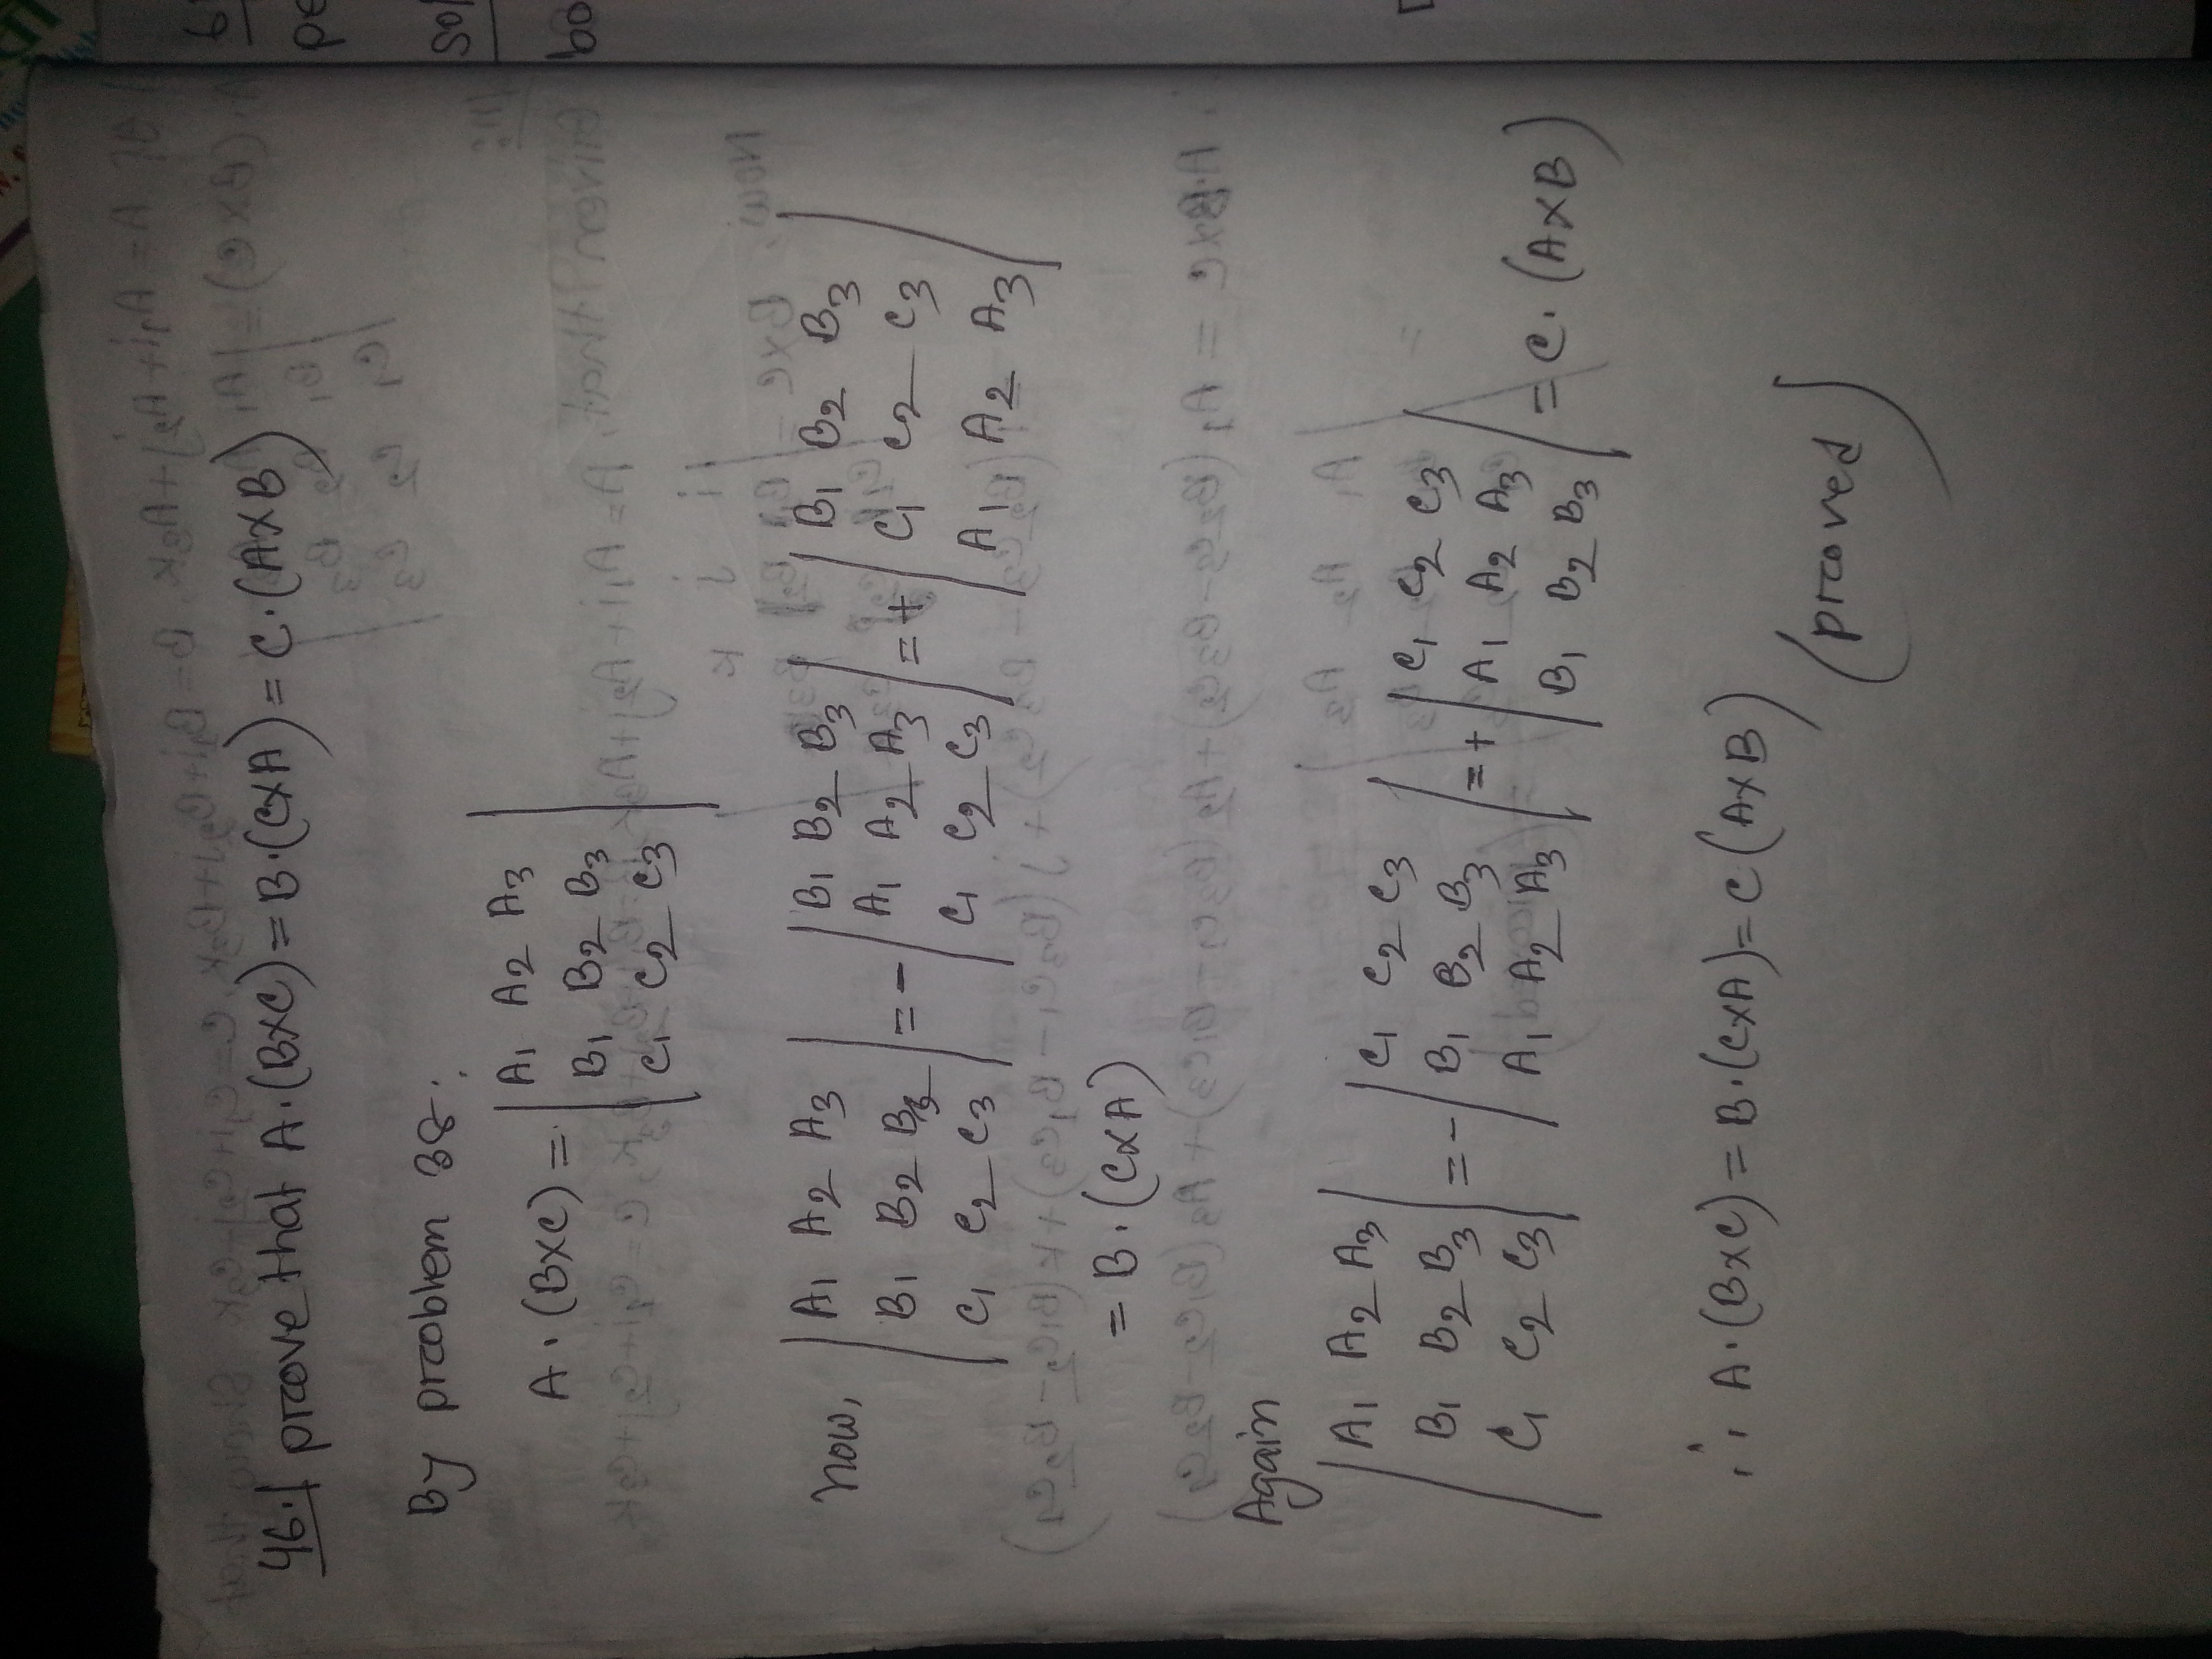 46.| prove that A.(B×C) = B.(C×A) = C.(A×B)
By problem 38:
A.(B×C) = | A1 A2 A3 |
| B1 B2 B3 |
| C1 C2 C3 |
Now, | A1 A2 A3 | = - | B1 B2 B3 | = + | B1 B2 B3 |
| B1 B2 B3 | | A1 A2 A3 | | C1 C2 C3 |
| C1 C2 C3 | | C1 C2 C3 | | A1 A2 A3 |
= B.(C×A)
Again
| A1 A2 A3 | = - | C1 C2 C3 | = + | C1 C2 C3 | = C.(A×B)
| B1 B2 B3 | | B1 B2 B3 | | A1 A2 A3 |
| C1 C2 C3 | | A1 A2 A3 | | B1 B2 B3 |
∴ A.(B×C) = B.(C×A) = C(A×B)
(proved)